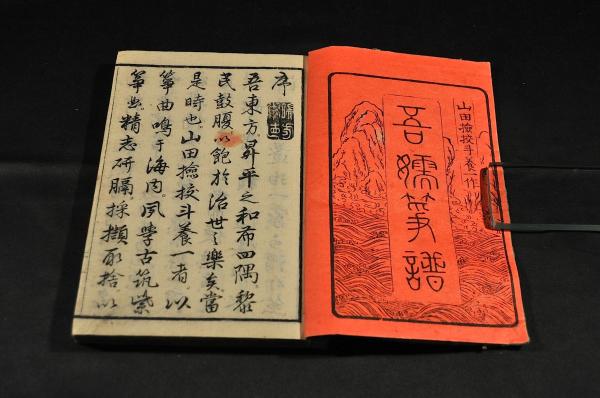 山田撿挍斗養一作
吾嬬筝譜
序
吾東方昇平之和布四隅黎
民鼓腹以飽於治世之樂矣當
是時也山田撿挍斗養一者以
筝曲鳴于海内夙學古筑紫
筝 精志研 採擷取捨以